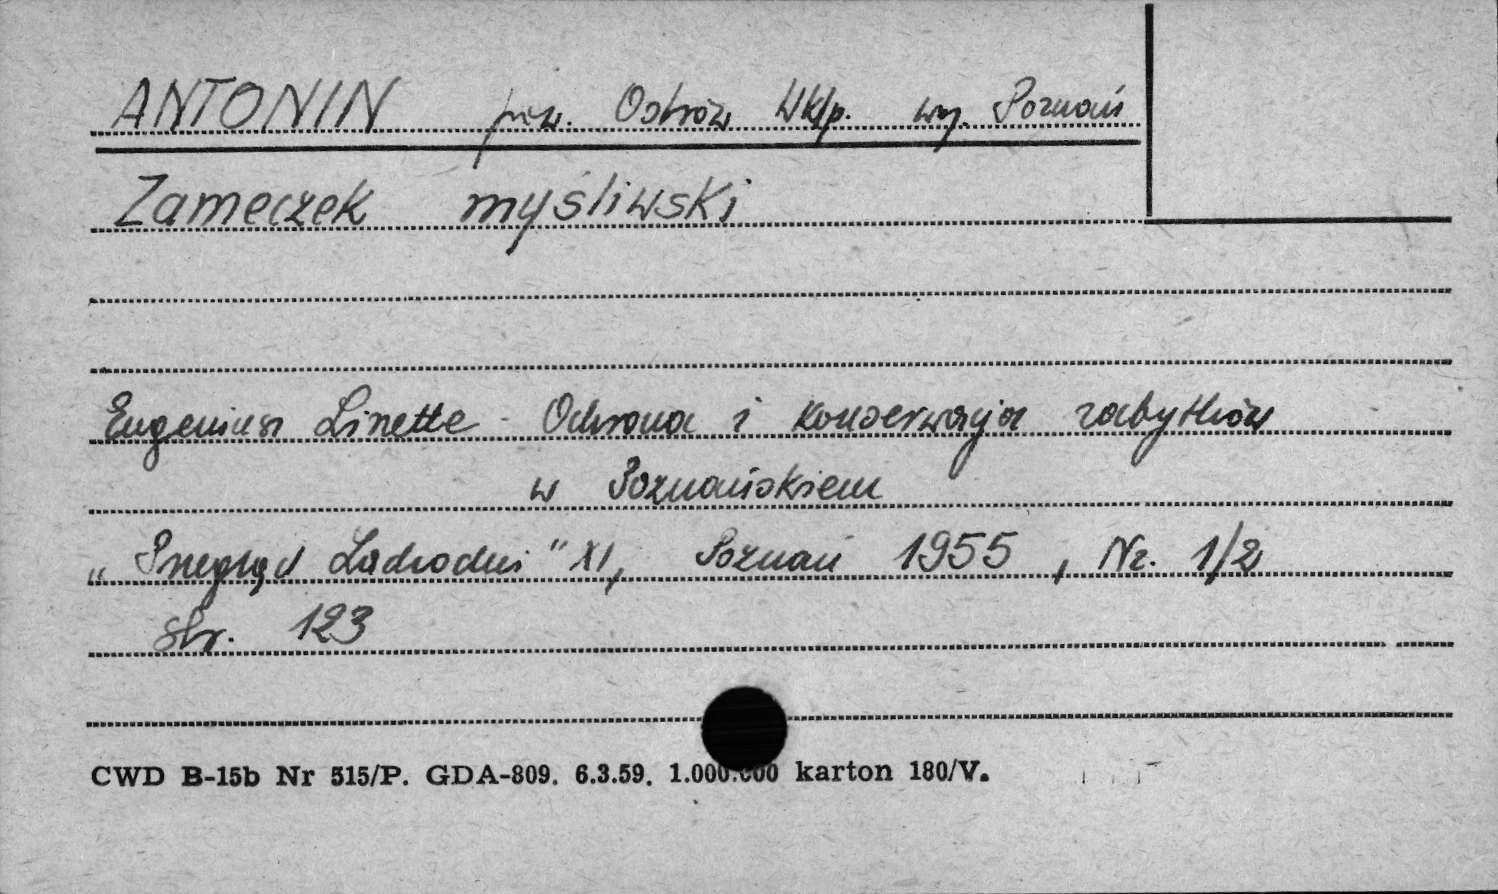 ANTONIN pow. Ostrów Wklp. woj. Poznań
Zameczek myśliwski
Eugeniusz Linette - Ochrona i konserwacja zabytków
w Poznańskiem
„Przegląd Zachodni" XI, Poznań 1955, Nr. 1/2
str. 123
CWD B-15b Nr 515/P. GDA-809. 6.3.59. 1.000.000 karton 180/V.